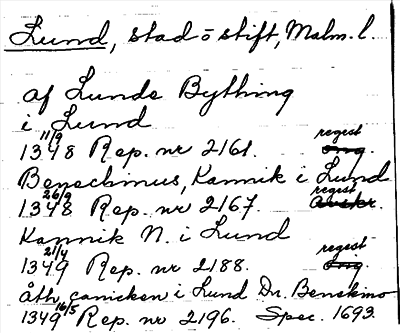 Lund, stad o stift, Malm. l.
af Lunde Bything
i Lund
1348 11/9 Rep. nr 2161. regest
Benechinus, Kannik i Lund
1348 26/9 Rep. nr 2167. regest
Kannik N. i Lund
1349 21/4 Rep. nr 2188. regest
åth canicken i Lund Dn. Benekino
1349 16/5 Rep. nr 2196. Spec. 1693.